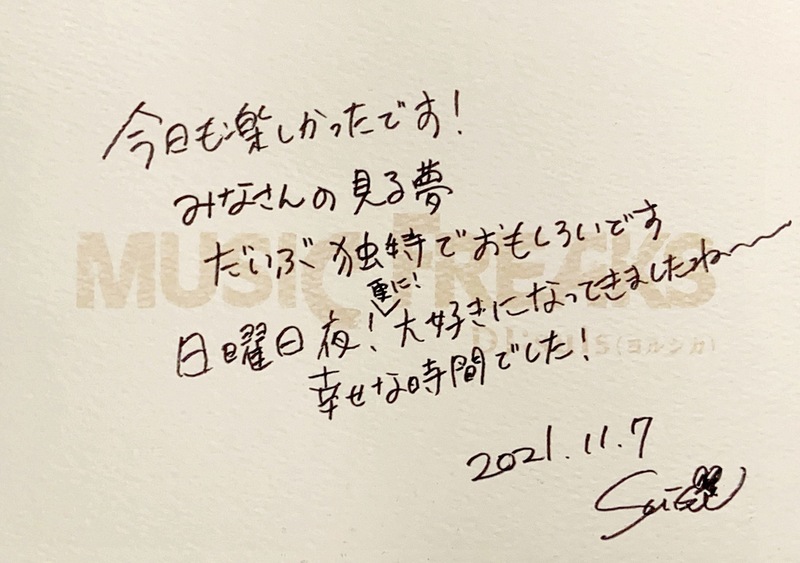 今日も楽しかったです!
みなさんの見る夢
だいぶ独特でおもしろいです
MUSIC FREAKS
更に!
日曜日夜!大好きになってきましたね〜
suis(ヨルシカ)
幸せな時間でした!
2021.11.7